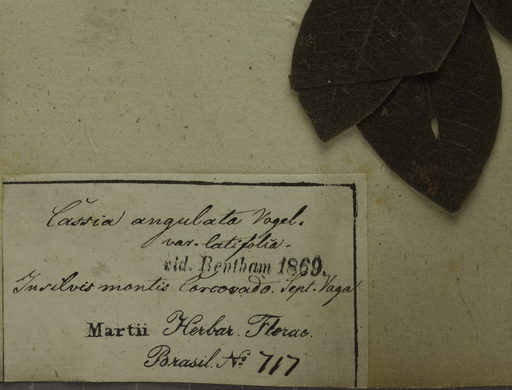 Cassia angulata Vogel.
var. latifolia.
vid. Bentham 1869.
In silvis montis Corcovado. Sept. Vaga
Martii Herbar. Florae
Brasil. No 717